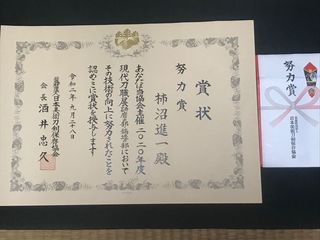 賞状
努力賞
柿沼進一殿
あなたは当協会主催二〇二〇年度
現代刀職展研磨・外装技術部において
その技術の向上に努力されたことを
認めここに賞状を授与します
令和二年九月二十八日
公益財団法人日本美術刀剣保存協会
会長 酒井忠久
努力賞
公益財団法人
日本美術刀剣保存協会